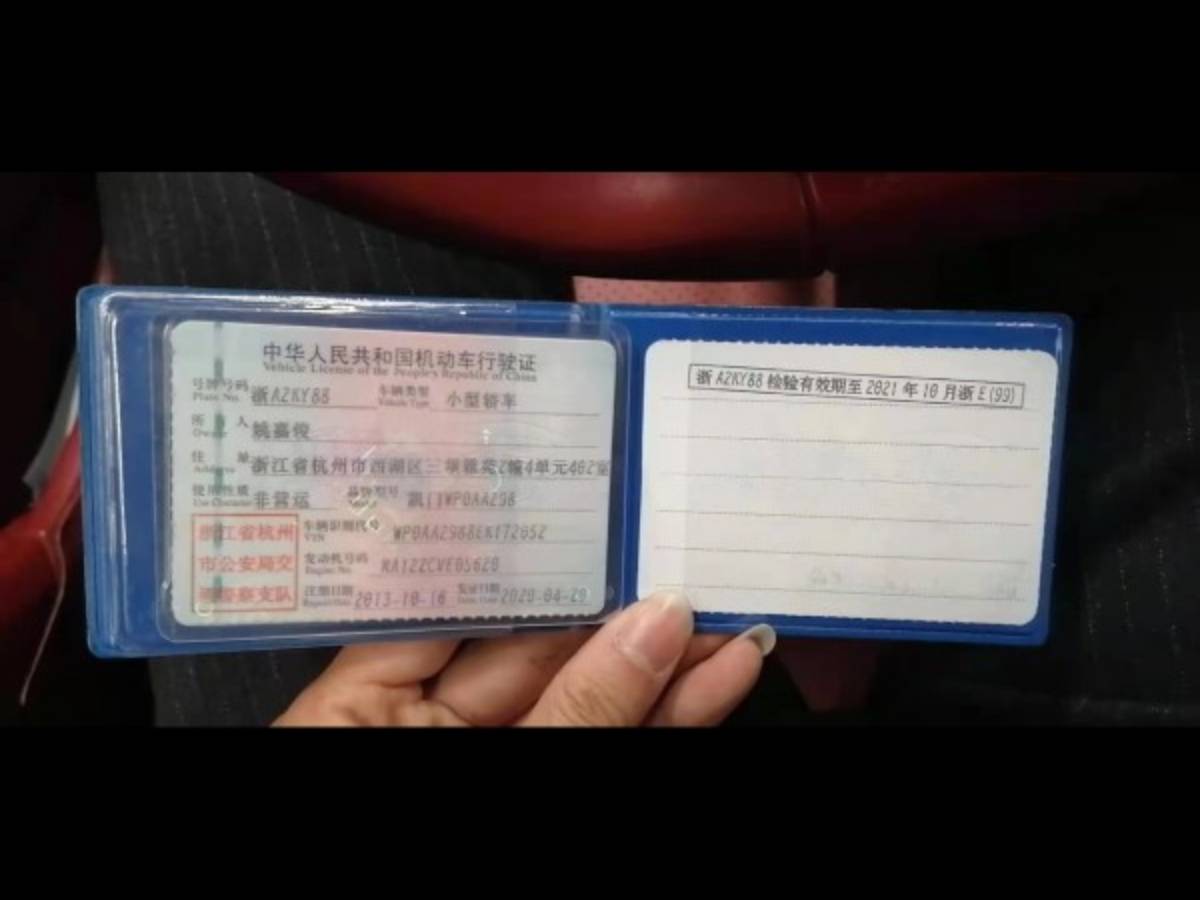 中华人民共和国机动车行驶证
Vehicle License of the People's Republic of China
号牌号码 浙A2KY88 车辆类型 小型轿车
Plate No. Vehicle Type
所有人 姚嘉俊
Owner
住址 浙江省杭州市西湖区三坝雅苑2幢4单元402室
Address
使用性质 非营运 品牌型号 凯门WP0AA298
Use Character
浙江省杭州
市公安局交
通警察支队
车辆识别代号
VIN
发动机号码
Engine No.
注册日期 2013-10-16 发证日期 2020-04-20
Register Date Issue Date
浙A2KY88检验有效期至2021年10月浙E(99)